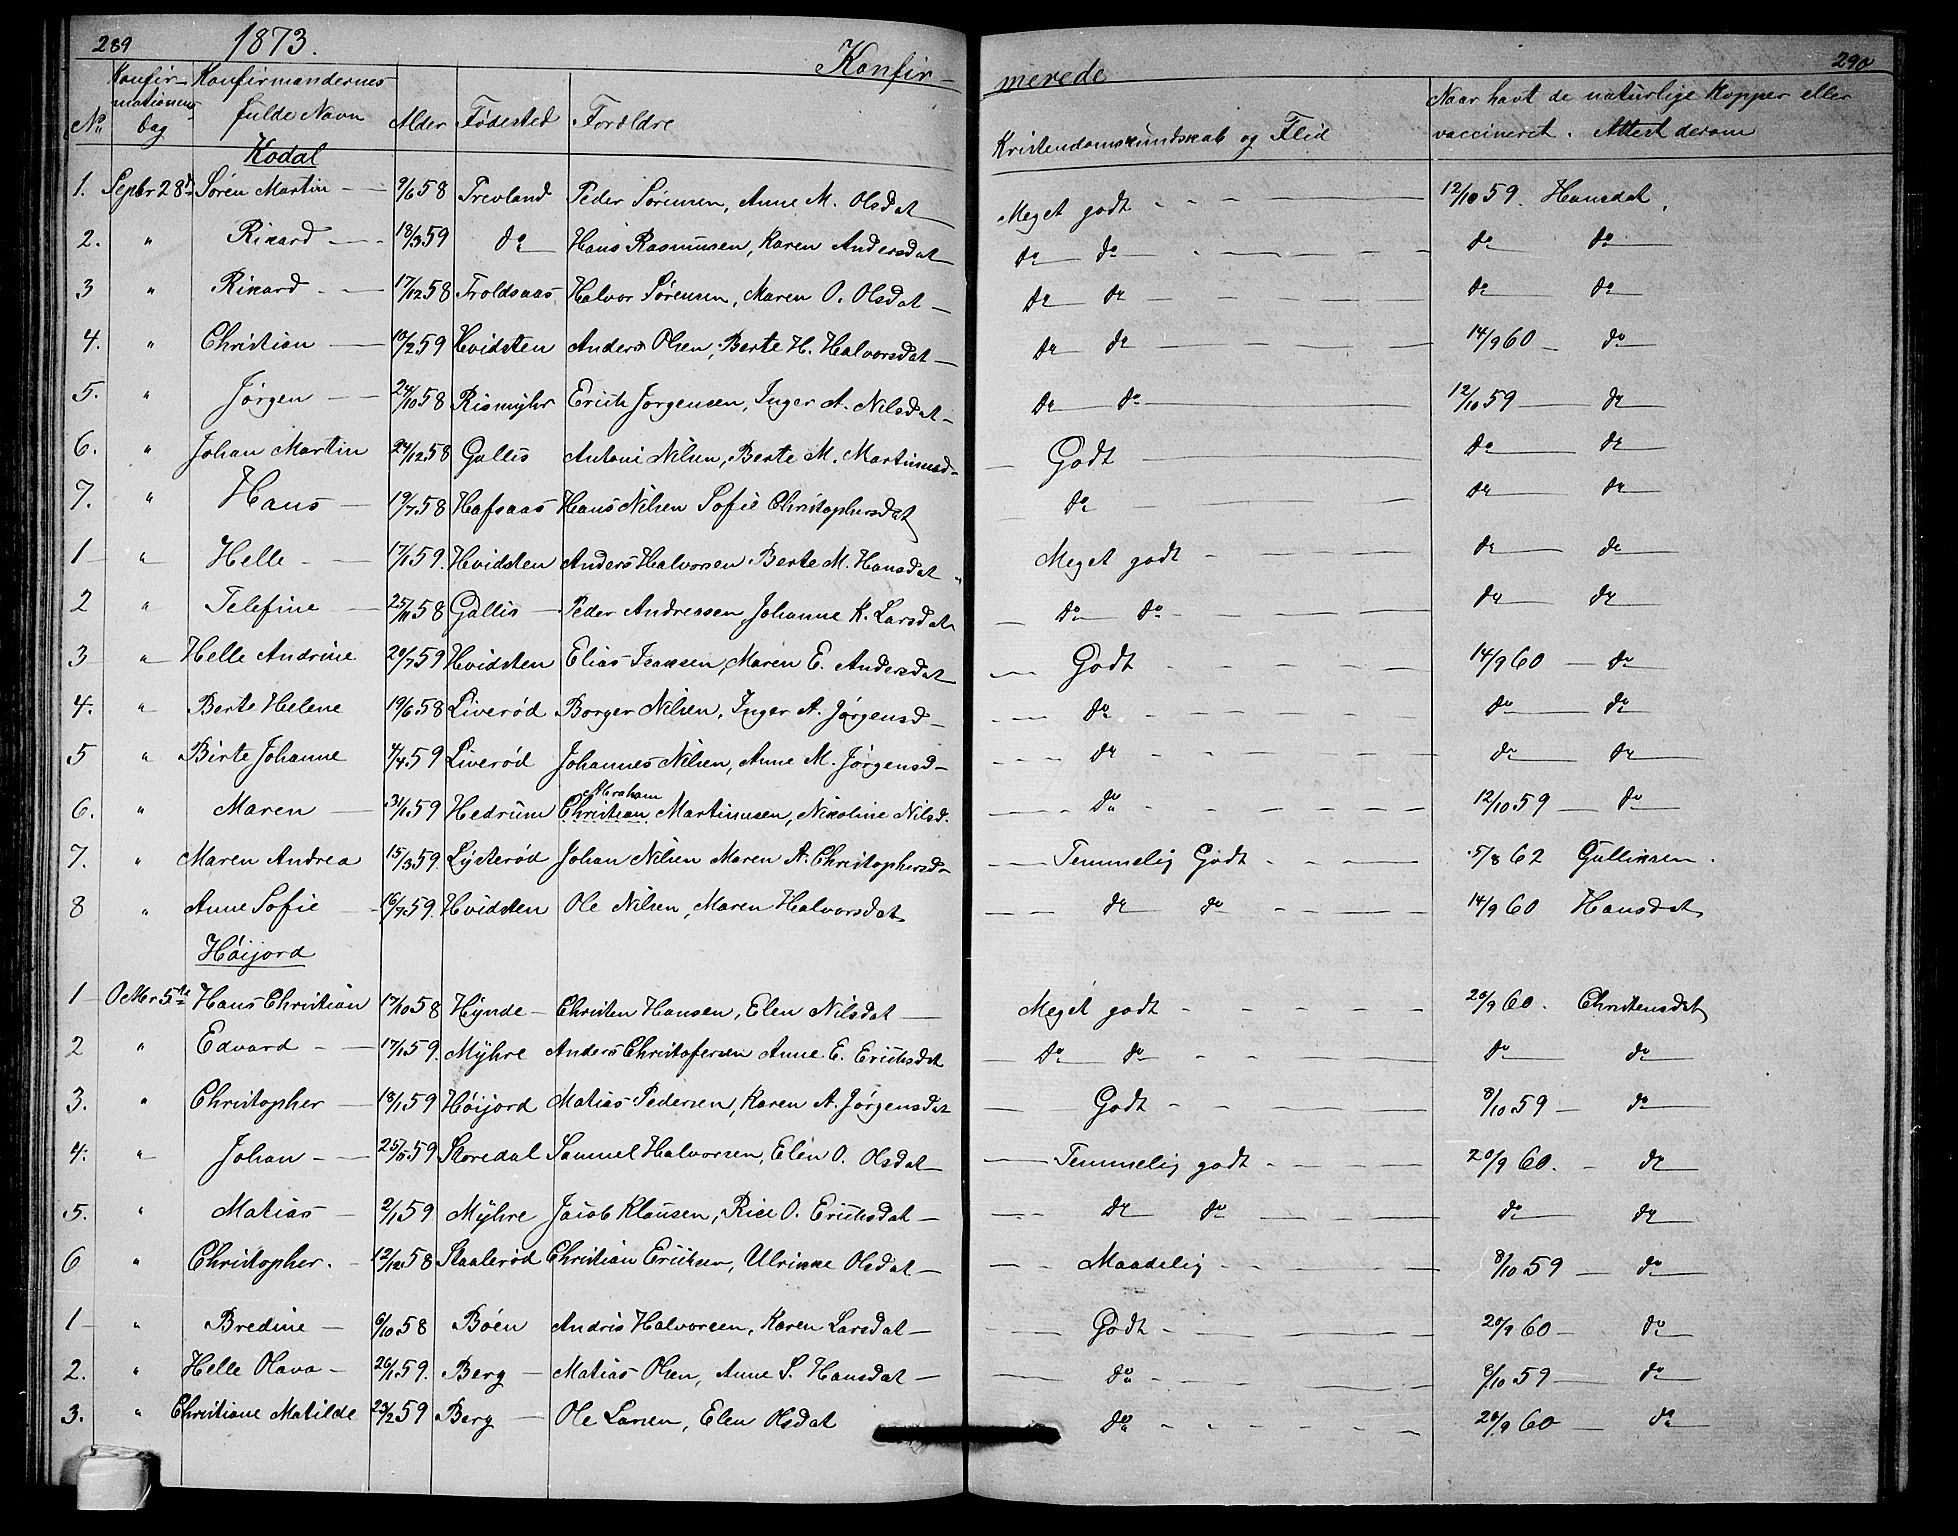 289 1873. Konfir-
No Konfirmationens Dag Konfirmandernes fulde Navn Alder Fødested Forældre
Kodal
1. Septbr 28d Søren Martin 9/6 58 Trevland Peder Sørensen, Anne M. Olsdat
2. " Rikard 18/3 59 do Hans Rasmussen, Karen Andersdat
3 " Rikard 17/12 58 Troldsaas Halvor Sørensen, Maren O. Olsdat
4. " Christian 10/2 59 Hvidsten Anders Olsen, Berte H. Halvorsdat
5. " Jørgen 24/10 58 Rismyhr Erich Jørgensen, Inger A. Nilsdat
6. " Johan Martin 24/12 58 Gallis Antoni Nilsen, Berte M. Martinusd
7. " Hans 19/7 58 Hafsaas Hans Nilsen Sofie Christophersdat
1 " Helle 17/1 59. Hvidsten Anders Halvorsen Berte M. Hansdat
2 " Telefine 25/11 58 Gallis Peder Andreasen, Johanne K. Larsdat
3 " Helle Andrine 20/7 59 Hvidsten Elias Isaksen, Maren E. Andersdat
4. " Berte Helene 19/6 58 Liverød Borger Nilsen, Inger A. Jørgensd
5 " Birte Johanne 4/4 59 Liverød Johannes Nilsen, Anne M. Jørgensd
6. " Maren 31/1 59 Hedrum Christian Abraham Martinusen, Nicoline Nilsd.
7. " Maren Andrea 15/3 59. Lysterød Johan Nilsen Maren A. Christophersd
8 " Anne Sofie 16/7 59. Hvidsten Ole Nilsen, Maren Halvorsdat
Høijord
1 Octbr 5te Hans Christian 17/10 58 Hynde Christen Hansen, Elen Nilsdat
2 " Edvard 17/1 59. Myhre Anders Christofersen Anne E. Erichsdat
3. " Christopher 18/1 59 Høijord Matias Pedersen, Karen A. Jørgensdat
4. " Johan 59 Skoredal Samuel Halvorsen, Elen O. Olsdat
5. " Matias 2/1 59 Myhre Jacob Klausen, O. Erichsdat
6 " Christopher. 12/12 58 Skaalerød Christian Ericksen, Ulrikke Olsdat
1 " Bredine 6/10 58 Bøen Andris Halvorsen, Karen Larsdat
2. " Helle Olava 26/1 59. Berg Matias Olsen, Anne S. Hansdat
3. " Christiane Matilde 23/2 59 Berg Ole Larsen, Elen Olsdat
merede 290
Kristendomskundskab og Flid Naar havt de naturlige Kopper eller vaccineret. Attest derom
Meget godt 12/10 59. Hansdat.
do do do do
do do do do
do do 14/9 60 do
do do 12/10 59 do
Godt do do
do do do
Meget godt do do
do do do do
Godt 14/9 60 do
do do do
do do do
do 12/10 59 do
Temmelig Godt 5/8 62 Gullixsen.
do do 14/9 60 Hansdat
Meget godt 20/9 60. Christensdat
do do do do
Godt 8/10 59 do
Temmelig godt 20/9 60. do
do do do do
Maadelig 8/10 59 do
Godt 20/9 60 do
do 8/10 59 do
do 20/9 60 do